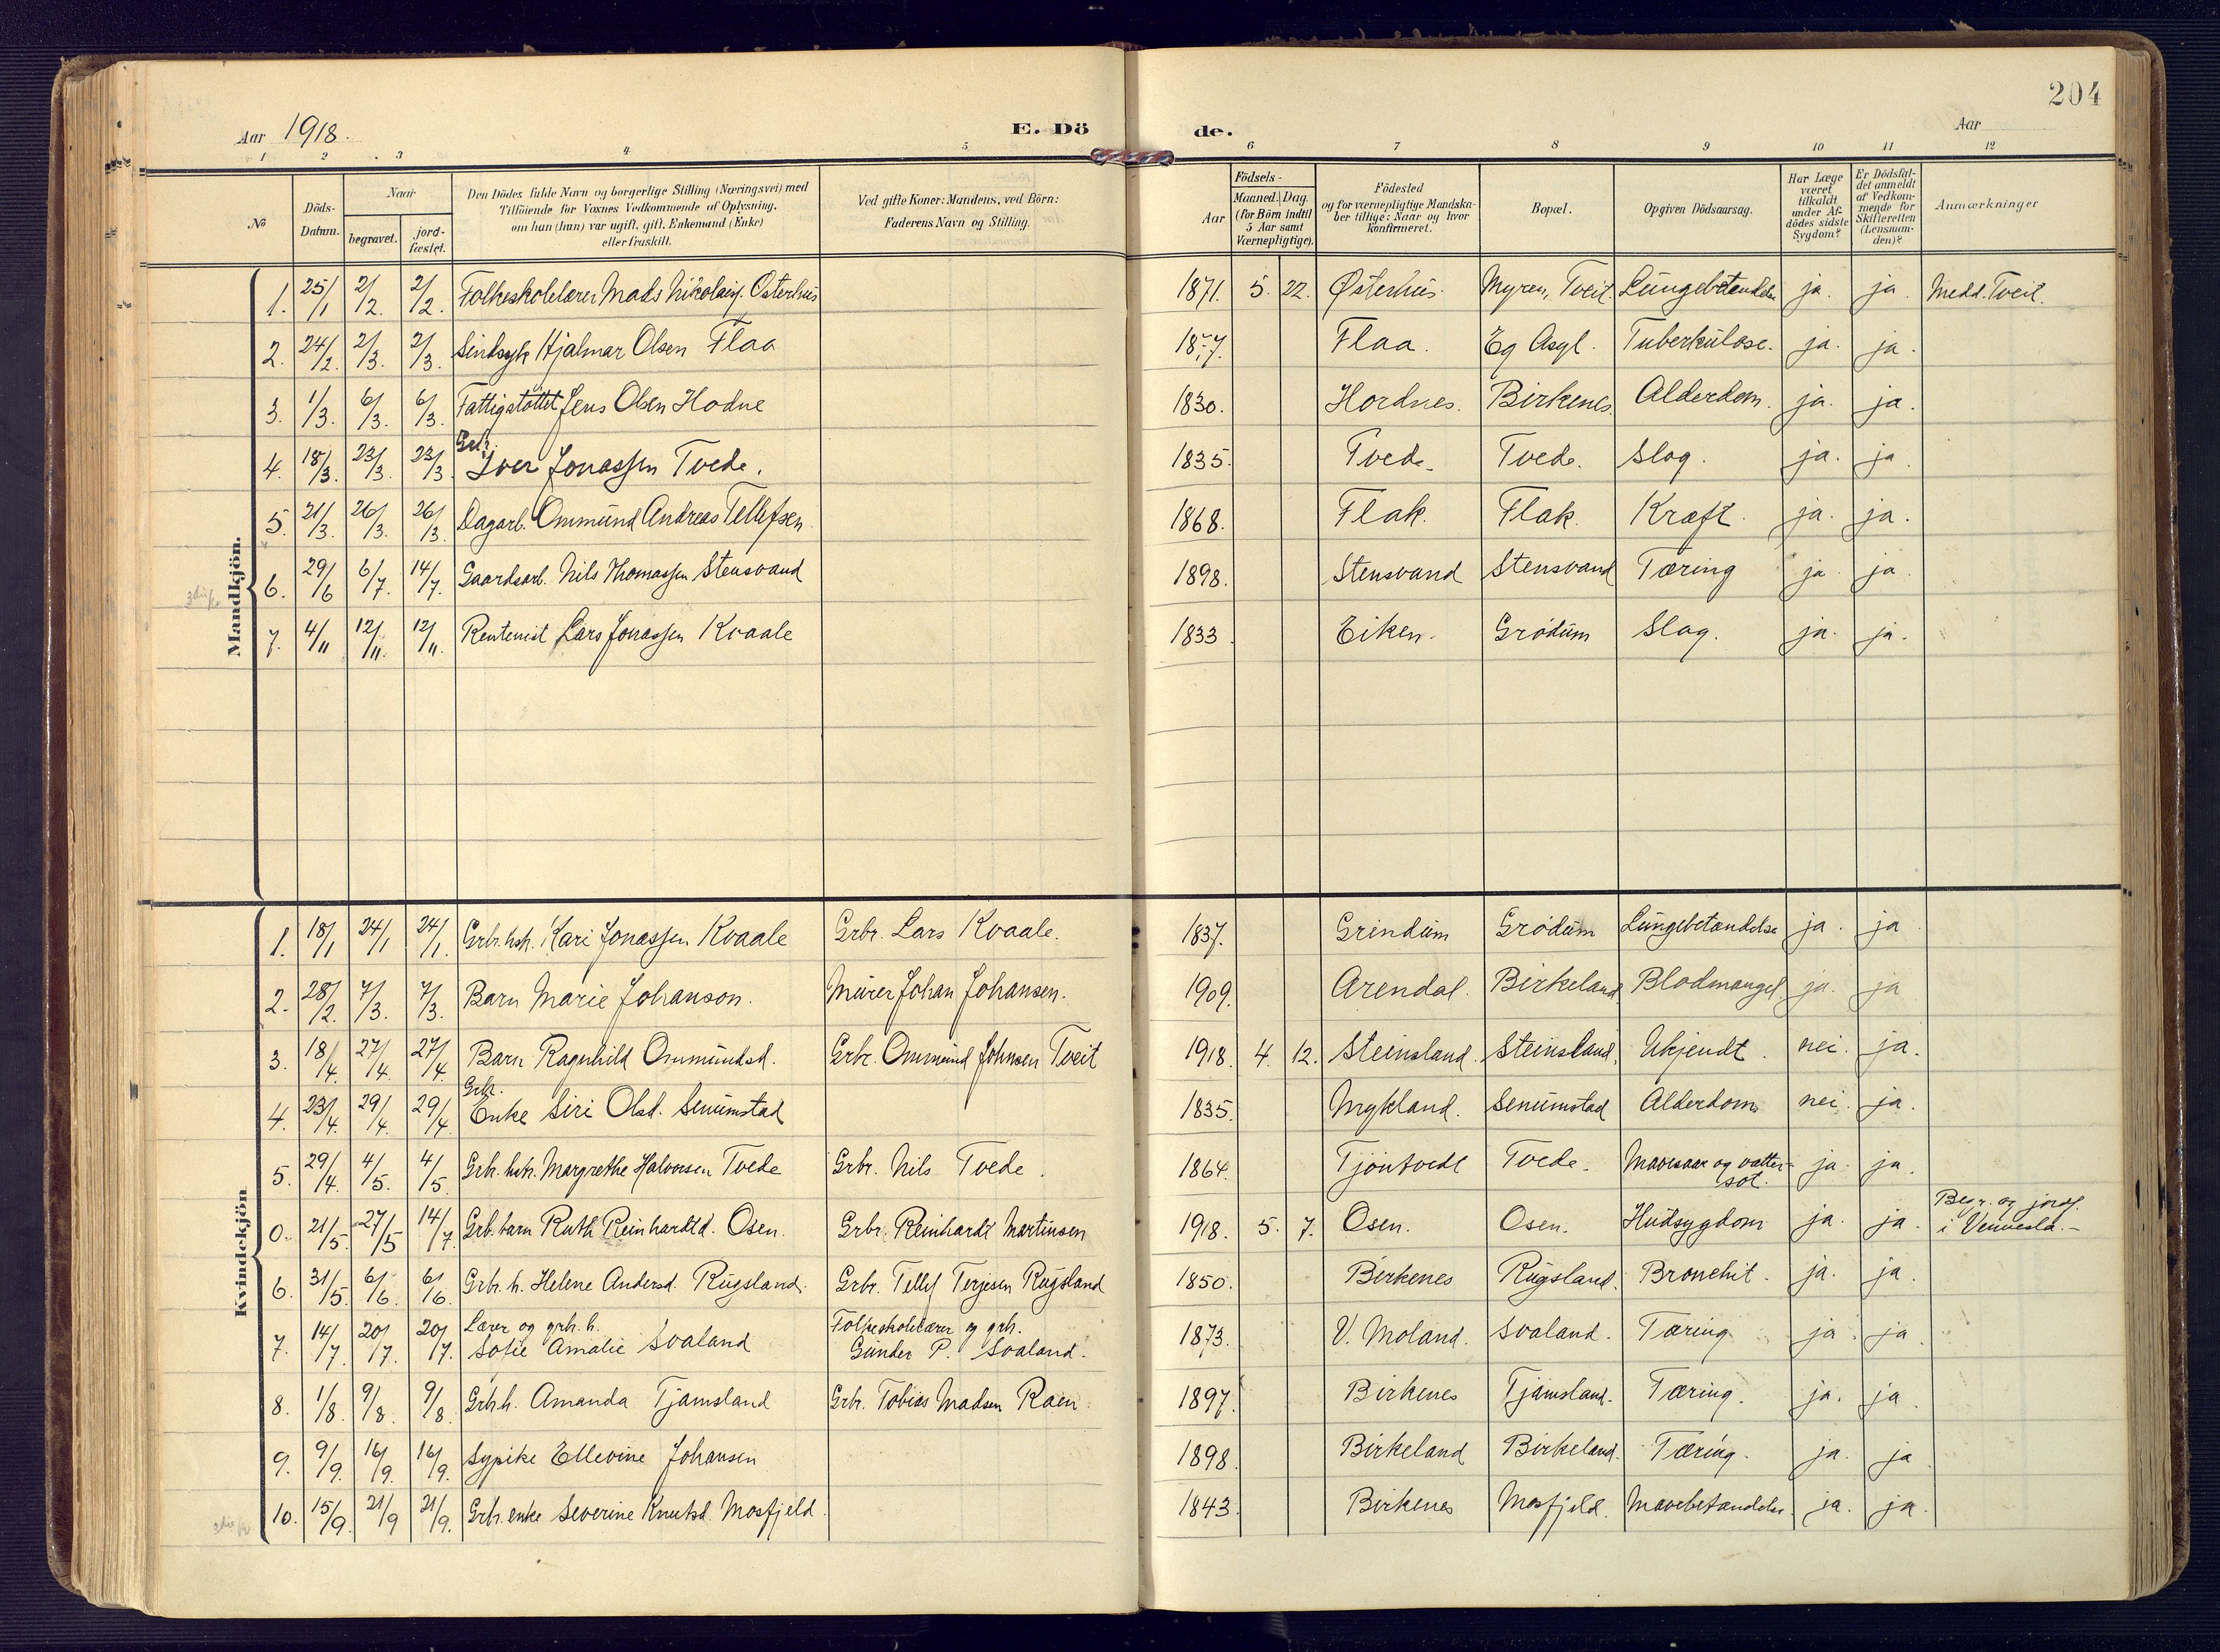 204
Aar 1918.
E. Dö de.
Aar
1 2 3 4 5 6 7 8 9 10 11 12
No
Döds-Datum.
Naar
begravet.
jord-fæstet.
Den Dödes fulde Navn og borgerlige Stilling (Næringsvei) med
Tilföiende for Voxnes Vedkommende af Oplysning,
om han (hun) var ugift, gift, Enkemand (Enke)
eller fraskilt.
Ved gifte Koner: Mandens, ved Börn:
Faderens Navn og Stilling.
Födsels-
Aar
Maaned. Dag.
(for Börn indtil
5 Aar samt
Værnepligtige).
Födested
og for værnepligtige Mandska-
ber tillige: Naar og hvor
konfirmeret.
Bopæl.
Opgiven Dödsaarsag.
Har Læge
været
tilkaldt
under Af-
dödes sidste
Sygdom?
Er Dödsfal-
det anmeldt
af Vedkom-
mende for
Skifteretten
(Lensman-
den)?
Anmærkninger
Mandkjön.
1. 25/1 2/2. 2/2. Folkeskolelærer Mads Nikolaisf. Osterhus 1871. 5. 22. Østerhus. Myren, Tveit. Lungebetendelse ja. ja. Medd. Tveit.
2. 24/2. 2/3. 2/3. Sindsyk Hjalmar Olsen Flaa Flaa. Eg Asyl. Tuberkulose. ja. ja.
3. 1/3. 6/3. 6/3. Fattigstöttet Jens Olsen Hodne 1830. Hordnes. Birkenes. Alderdom. ja. ja.
4. 18/3. 23/3. 23/3. Grbr. Iver Jonassen Tvede. 1835. Tvede. Tvede. Slag. ja. ja.
5. 21/3. 26/3. 26/3. Dagarb. Ommund Andreas Tellefsen. 1868. Flak. Flak. Kræft. ja. ja.
6. 29/6 6/7. 14/7. Gaardsarb. Nils Thomassen Stensvand 1898. Stensvand Stensvand Tæring ja ja.
7. 4/11 12/11. 12/11. Rentenist Lars Jonassen Kvaale 1833. Eiken. Grödum Slag. ja. ja.
Kvindekjön
1. 18/1 24/1 24/1. Grbr. hstr. Kari Jonassen Kvaale Grbr. Lars Kvaale. 1837. Grindum Grödum Lungebetændelse ja. ja
2. 28/2. 7/3. 7/3. Barn Marie Johanson. Murer Johan Johansen. 1909. Arendal. Birkeland Blodmangel. ja. ja
3. 18/4. 27/4. 27/4. Barn Ragnhild Ommundsd. Grbr. Ommund Johnsen Tveit 1918. 4. 12. Steinsland. Steinsland. Ukjendt. nei. ja.
4. 23/4. 29/4. 29/4. Grbr. Enke Siri Olsd. Senumstad 1835. Mykland. Senumstad Alderdom nei. ja.
5. 29/4. 4/5. 4/5. Grbr. hstr. Margrethe Halvorsen Tvede Grbr. Nils Tvede. 1864. Tjöntvedt Tvede. Mavesaar og vatter-
sot. ja. ja.
0. 21/5. 27/5 14/7. Grb. barn Ruth Reinhardtd. Osen. Grbr. Reinhardt Martinsen 1918. 5. 7. Osen. Osen. Hudsygdom ja. ja. Begr. og jordf.
i Vennesla.-
6. 31/5. 6/6. 6/6. Grbr. h. Helene Andersd. Rugsland. Grbr. Tellef Terjesen Rugsland 1850. Birkenes Rugsland. Bronchit. ja. ja.
7. 14/7. 20/7. 20/7. Lærer og grbr. h.
Sofie Amalie Svaland Folkeskolelærer og grb.
Gunder P. Svaland. 1873. V. Moland. Svaland. Tæring. ja. ja.
8. 1/8. 9/8. 9/8. Grbr. h. Amanda Tjamsland Grbr. Tobias Madsen Raen 1897. Birkenes Tjamsland. Tæring. ja. ja
9. 9/9. 16/9. 16/9. Sypike Ellevine Johansen 1898. Birkeland Birkeland. Tæring. ja. ja
10. 15/9. 21/9 21/9. Grbr. enke Severine Knutsd. Mosfjeld. 1843. Birkenes Mosfjeld. Mavebetændelse. ja. ja.